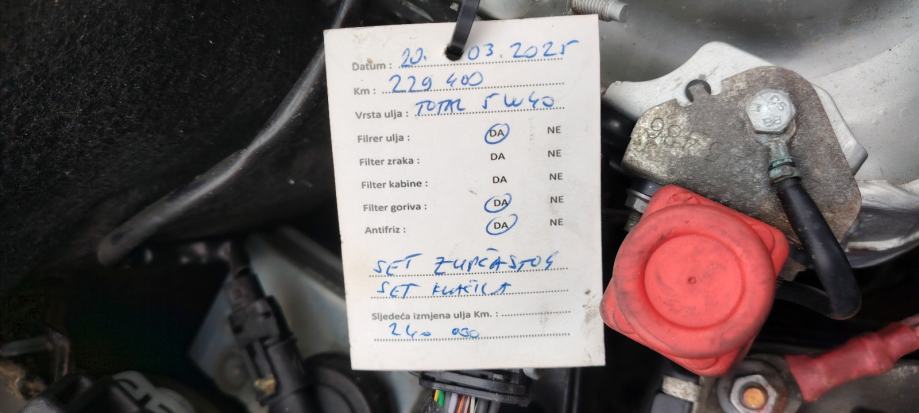 Datum : 20. 03. 2025
Km : 229 400
Vrsta ulja : TOTAL 5W40
Filrer ulja : DA NE
Filter zraka : DA NE
Filter kabine : DA NE
Filter goriva : DA NE
Antifriz : DA NE
SET ZUPČASTOG
SET KVAČILA
Sljedeća izmjena ulja Km. :
240 000
8.8